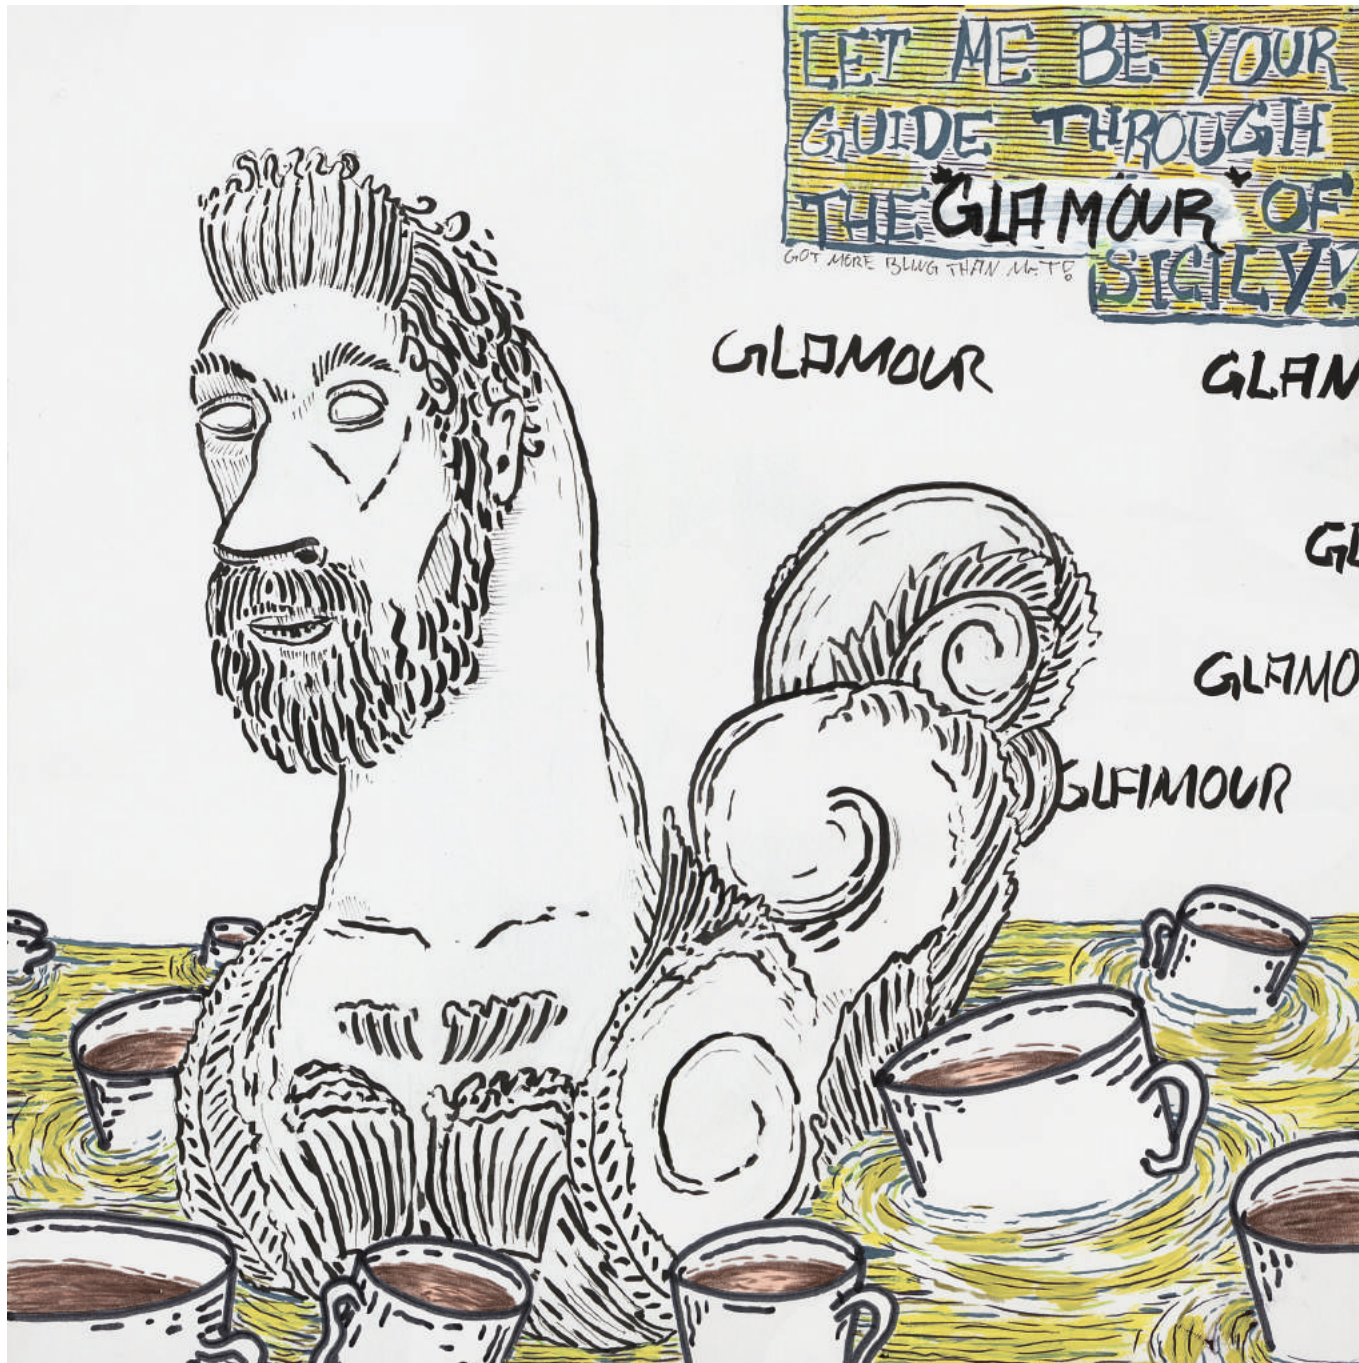 LET ME BE YOUR
GUIDE THROUGH
THE "GLAMOUR" OF
SICILY!
GOT MORE BLING THAN Mr T!
GLAMOUR
GLAM
GL
GLAMO
GLAMOUR